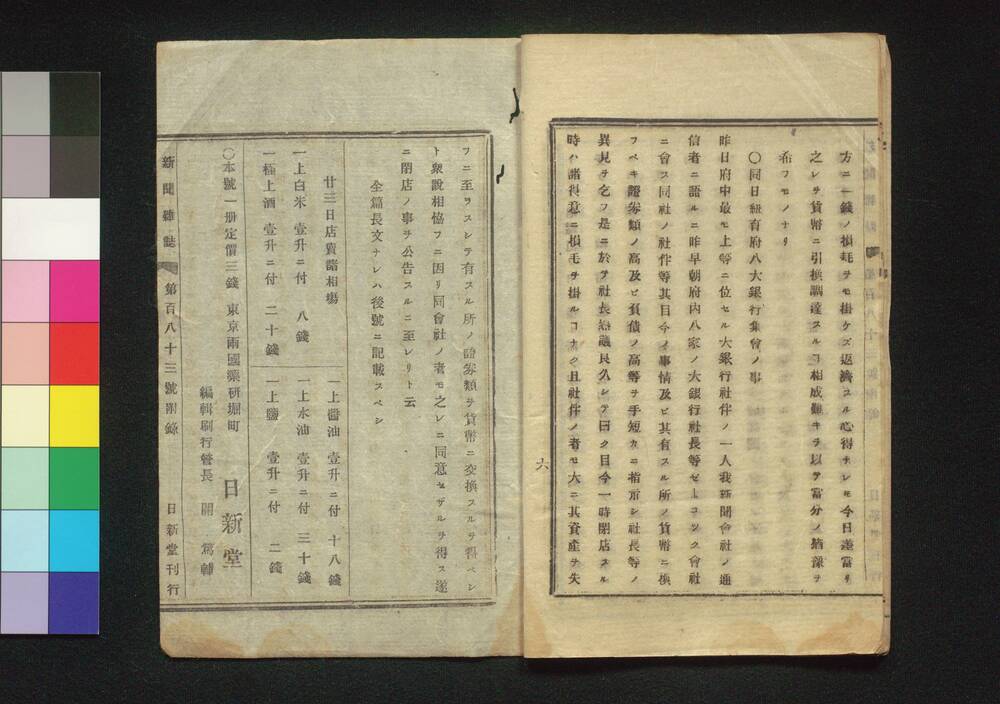 方ニ一錢ノ損耗ヲモ掛ケズ返濟スル心得ナレモ今日差當リ
之レヲ貨幣ニ引換調達スルヿ相成難キヲ以テ當分ノ猶豫ヲ
希フモノナリ
〇同日紐育府八大銀行集會ノ事
昨日府中最モ上等ニ位セル大銀行社件ノ一人我新聞會社ノ通
信者ニ語ルニ昨早朝府內八家ノ大銀行社長等ゼーコック會社
ニ會ス同社ノ社件等其目今ノ事情及ビ其有スル所ノ貨幣ニ換
フベキ證券類ノ高及ビ負債ノ高等ヲ手短カニ指示シ社長等ノ
異見ヲ乞フ是ニ於テ社長熟議良久シテ曰ク目今一時閉店スル
時ハ諸得意ニ損毛ヲ掛ルコナク且社件ノ者モ大ニ其資產ヲ失
六
フニ至ラスシテ有スル所ノ證券類ヲ貨幣ニ交換スルヲ得ベシ
ト衆說相協フニ因リ同會社ノ者モ之レニ同意セザルヲ得ス遂
ニ閉店ノ事ヲ公告スルニ至レリト云
全篇長文ナレハ後號ニ記載スベシ
廿三日店賣諸相場
一上白米 壹升ニ付 八錢
一極上酒 壹升ニ付 二十錢
一上醬油 壹升ニ付 十八錢
一上水油 壹升ニ付 三十錢
一上鹽 壹升ニ付 二錢
〇本號一册定價三錢 東京兩國藥硏堀町 日新堂
編輯刷行管長
新聞雜誌 第百八十三號附錄 日新堂刊行